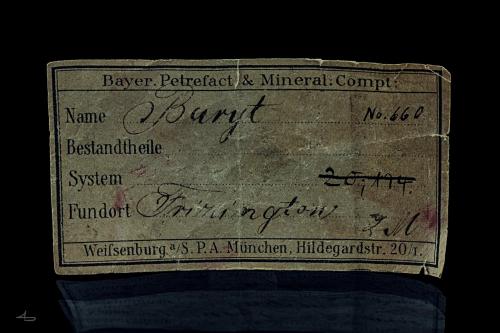 Bayer. Petrefact & Mineral. Compt:
Name Baryt No. 660
Bestandtheile
System 20,194.
Fundort Frizington
Weifsenburg a/S. P.A. München, Hildegardstr. 20/1.